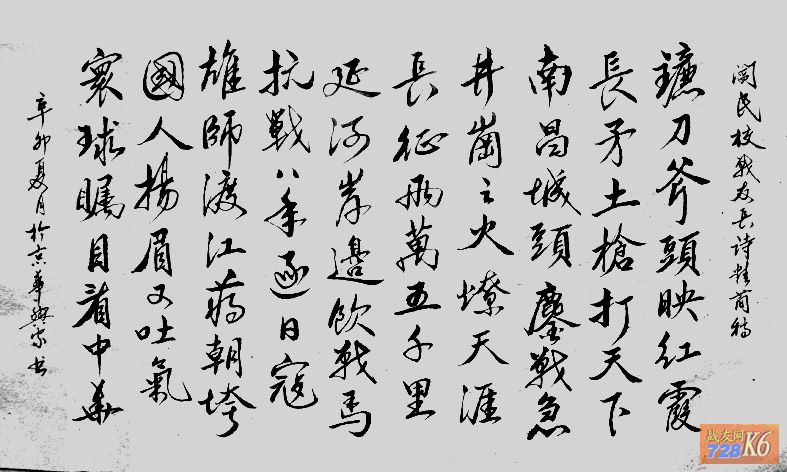 阅民校戰友長诗精简稿
鐮刀斧頭映红霞
長矛土槍打天下
南昌城頭鏖戰急
井崗之火燎天涯
長征兩萬五千里
延河岸邊飲戰馬
抗戰八年逐日寇
雄師渡江蔣朝垮
國人揚眉又吐氣
寰球矚目看中華
辛卯夏月於京華书
战友网
728 K6